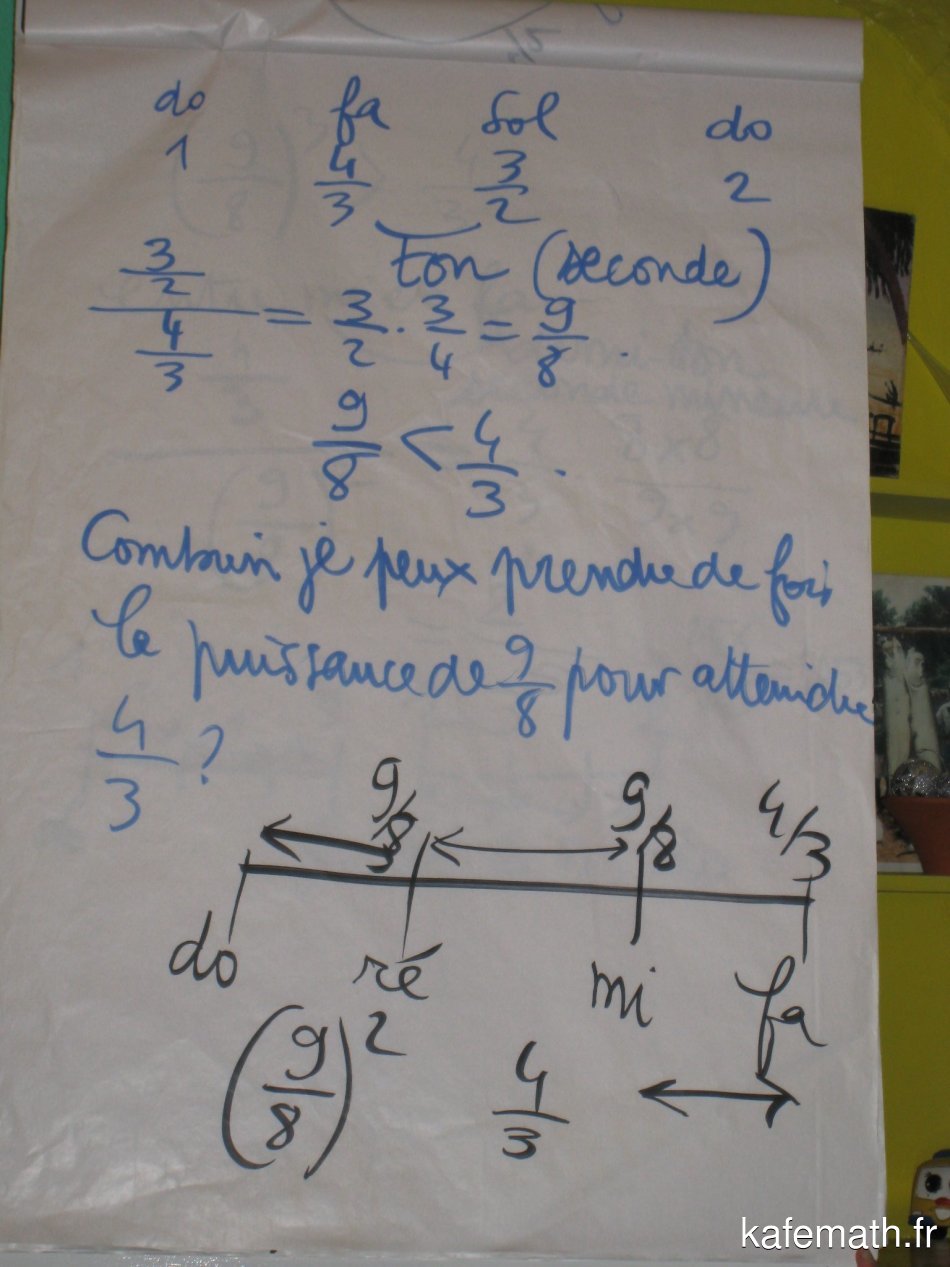 do fa sol do
1 4/3 3/2 2
ton (seconde)
(3/2)/(4/3) = 3/2 . 3/4 = 9/8 .
9/8 < 4/3 .
Combien je peux prendre de fois
la puissance de 9/8 pour atteindre
4/3 ?
9/8 9/8 4/3
do ré mi fa
(9/8)² 4/3
kafemath.fr